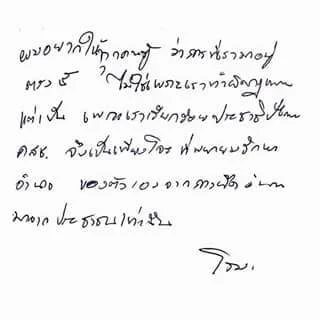 ผมอยากให้ทุกคนรู้ ว่าการที่เรามาอยู่
ตรงนี้ ไม่ใช่เพราะเราทำผิดกฎหมาย
แต่เป็น เพราะเราเรียกร้องประชาธิปไตย
คสช. จึงเป็นเพียงโจร ที่พยายามรักษา
อำนาจ ของตัวเองจากการยึดอำนาจ
มาจากประชาชนเท่านั้น
โรม.